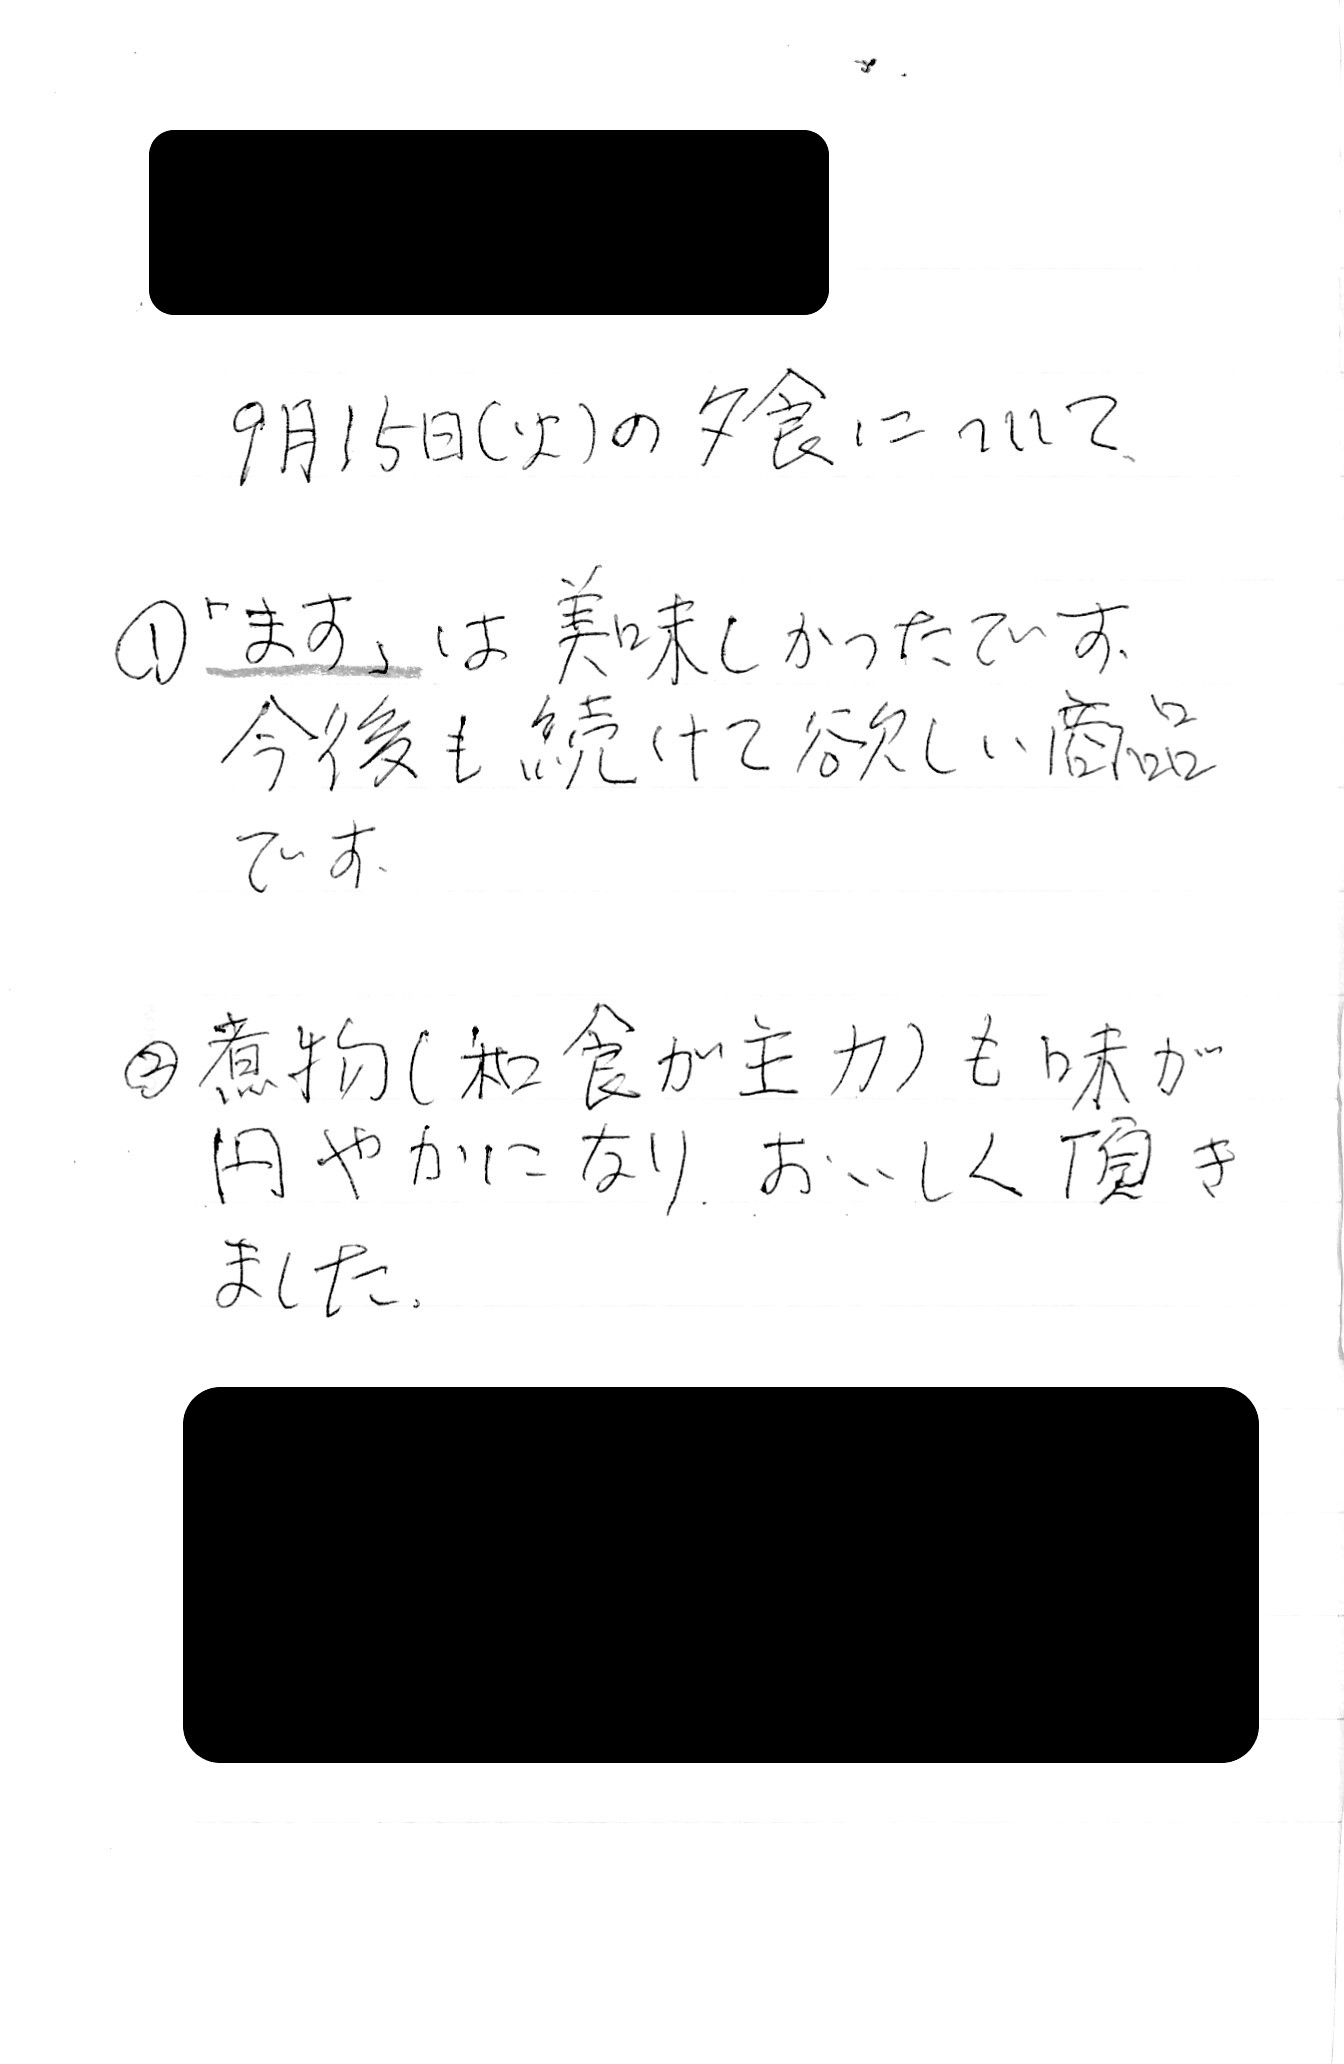 9月15日(火)の夕食について、
①「ます」は美味しかったです、
今後も続けて欲しい商品
です、
②煮物(和食が主力)も味が
円やかになり、おいしく頂き
ました。